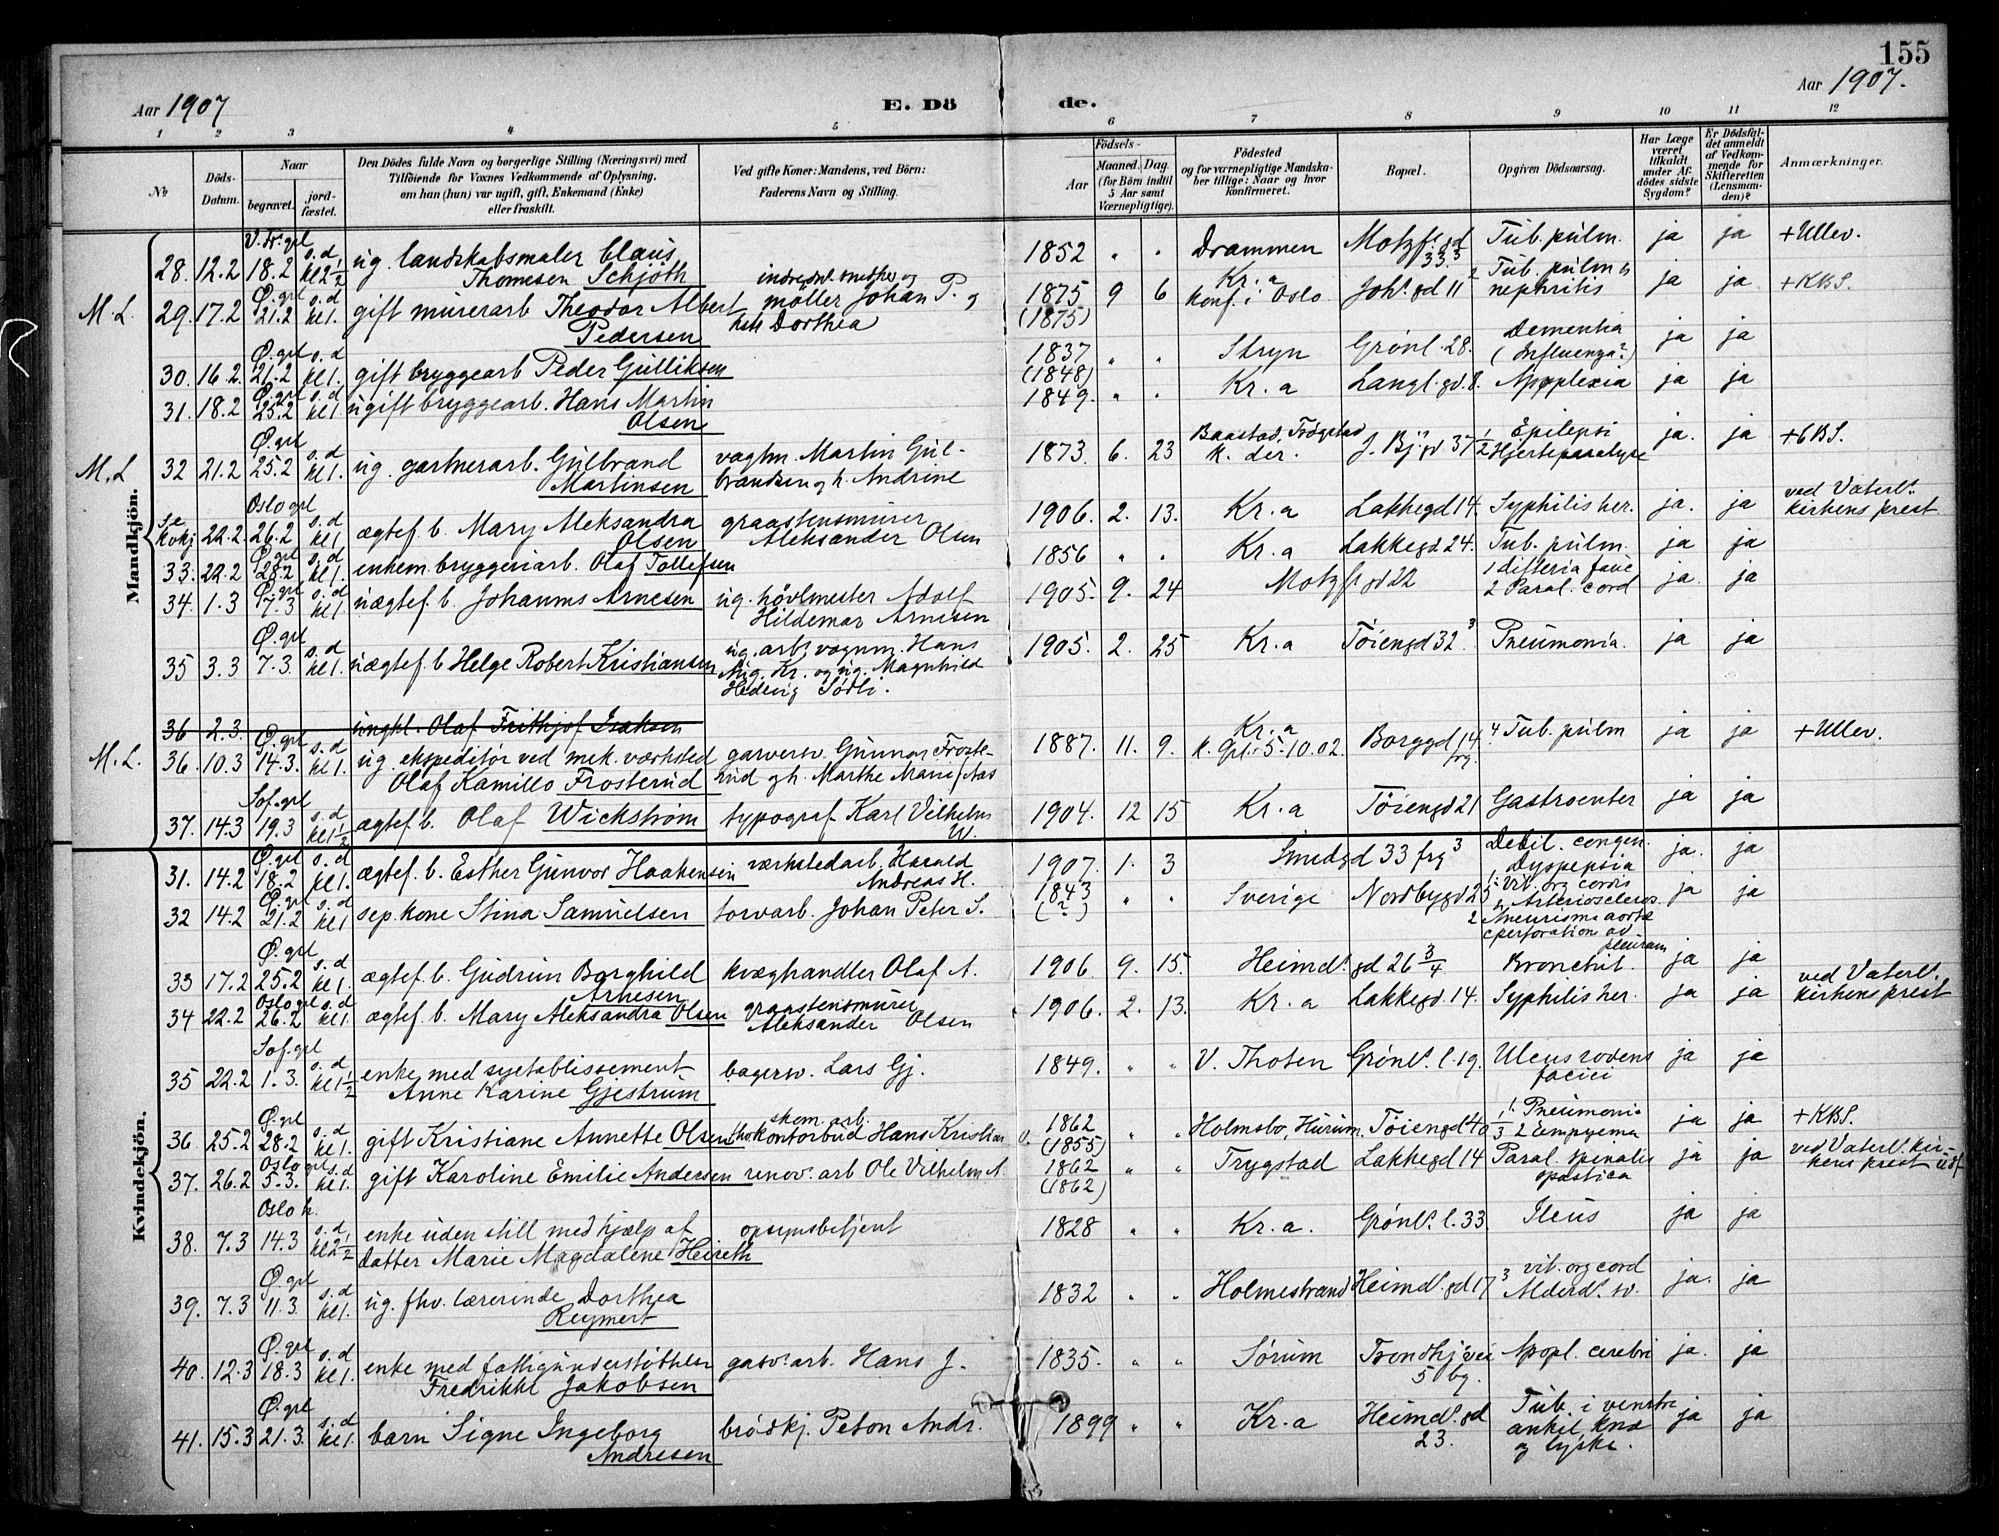 155
Aar 1907
E. Dö
de.
Aar 1907.
1 2 3 4 5 6 7 8 9 10 11 12
№
Döds-Datum.
Naar
begravet.
jord-fæstet.
Den Dödes fulde Navn og borgerlige Stilling (Næringsvei) med
Tilföiende for Voxnes Vedkommende af Oplysning,
om han (hun) var ugift, gift, Enkemand (Enke)
eller fraskilt.
Ved gifte Koner: Mandens, ved Börn:
Faderens Navn og Stilling.
Födsels-
Aar
Maaned. Dag.
(for Börn indtil
5 Aar samt
Værnepligtige).
Födested
og for værnepligtige Mandska-
ber tillige: Naar og hvor
konfirmeret.
Bopæl.
Opgiven Dödsaarsag.
Har Læge
været
tilkaldt
under Af-
dödes sidste
Sygdom?
Er Dödsfal-
det anmeldt
af Vedkom-
mende for
Skifteretten
(Lensman-
den)?
Anmærkninger.
Mandkjön.
V. Fr. grl s. d.
28. 12.2 18.2 kl 2½ ug. landskabsmaler Claus 1852 " " Drammen Motzf. gd 33.³ Tub. pulm. ja ja + Ullev.
Thomesen Schjöth
M.L. 29. 17.2 Ø. grl 21.2 s. d kl 1. gift murerarb Theodor Albert møller Johan P. og 1875 9 6 Kr. a Joh.s gd 11² Tub. pulm nephritis ja ja + KBS.
Pedersen h. Dorthea (1875) konf. i Oslo
30. 16.2. Ø. grl 21.2 s. d kl 1. gift bryggearb Peder Gulliksen 1837 " " Stryn Grønl. 28. Dementia (Influenza?) ja ja
(1848)
31. 18.2 Ø. grl 25.2 s. d kl 1. ugift bryggearb. Hans Martin 1849. " " Kr. a Langl. gd. 8. Apoplexia ja ja
Olsen
M.L 32 21.2 Ø. grl 25.2 s. d kl 1. ug. gartnerarb. Gulbrand vagtm. Martin Gul- 1873. 6. 23 Baastad, Trögstad J. Bj. gd 37 1 Epilepsi ja. ja + 6BS.
Martinsen brandsen og h. Andrine k. der. 2 Hjerteparalyse
Se Kvkj 22.2. Oslo grl 26.2 s. d kl 1. ægtef. b. Mary Aleksandra graastensmurer 1906. 2. 13. Kr. a Lakkegd 14. Syphilis her. ja. ja ved Vaterl.s
Olsen Aleksander Olsen kirkens prest
33. 22.2 Ø. grl 28.2 s. d kl 1. enkem. bryggeriarb. Olaf Tollefsen 1856 " " Kr. a Lakkegd. 24. Tub. pulm. ja ja
34. 1.3 Ø. grl 7.3 s. d kl 1. uægtef. b. Johannes Arnesen ug. høvlmester Adolf 1905. 9. 24 Motzf. gd 22 1 difteria fauc ja. ja
Hildemar Arnesen 2 Paral. cord
35 3.3 Ø. grl 7.3. s. d kl 1. uægtef. b Helge Robert Kristiansen ug. arb. vognm. Hans 1905. 2. 25 Kr. a Töiengd 32³ Pneumonia. ja ja
Aug. Kr. og ug. Magnhild
Hedvig Södli.
36 2.3. ungkl. Olaf Frithjof Isaksen
M.L. 36. 10.3 Ø. grl 14.3. s. d kl 1. ug. ekspeditör ved mek. værksted garversv. Gunnar Froste- 1887. 11. 9. Kr. a Borggd 14⁴ Tub. pulm ja ja + Ullev.
Olaf Kamillo Frosterud rud og h. Marthe Marie Aas k. Grl. 5-10.02. frg.
37. 14.3 Sof. grl 19.3 s. d kl 1½ ægtef. b. Olaf Wickstrøm typograf Karl Vilhelm W. 1904. 12 15 Kr. a Töiengd 21 Gastroenter ja ja
Kvindekjön.
31. 14.2 Ø. grl 18.2 s. d kl 1. ægtef. b. Esther Gunvor Haakensen værkstedarb. Harald 1907. 1. 3 Smedgd 33 frg³ Debil. congen. ja. ja
Andreas H. Dyspepsia
32 14.2 Ø. grl 21.2 s. d kl 1 sep. kone Stina Samuelsen torvarb. Johan Peter S. 1843 " " Sverige Nordbygd 25 1. Vit. org cordis ja ja
(?) Arterioscleros.
2 Aneurisma aortæ
c perforation av
pleuram
33 17.2 Ø. grl 25.2 s. d kl 1. ægtef. b. Gudrun Borghild kvæghandler Olaf A. 1906. 9. 15. Heimd.s gd 26 ¾ Bronchit. ja ja
Arnesen
34 22.2 Oslo grl 26.2 s. d kl 1. ægtef. b. Mary Aleksandra Olsen graastensmurer 1906. 2. 13. Kr. a Lakkegd. 14. Syphilis her. ja ja ved Vaterl.s
Aleksander Olsen kirkens prest
35 22.2 Sof. grl 1.3. s. d kl 1½ enke med syetablissement bagersv. Lars Gj. 1849. " " V. Thoten Grønl.s l. 19. Ulcus rodens ja ja
Anne Karine Gjestrum faciei
36. 25.2 Ø. grl 28.2 s. d kl 1. gift Kristiane Annette Olsen kontorbud Hans Kristian O. 1862 " " Holmsbo, Hurum. Töiengd 40 1. Pneumonia ja ja + KBS.
skom. arb. (1855) 2 Empyema
37. 26.2 Oslo grl 5.3. s. d kl 1. gift Karoline Emilie Andersen renov. arb Ole Vilhelm A. 1862 " " Trygstad Lakkegd 14 Paral. spinalis ja ja ved Vaterl. kir-
(1862) spastica kens prest udf
38. 7.3 Oslo k. 14.3 s. d. kl 2½ enke uden still med hjælp af opsynsbetjent 1828 " " Kr. a. Grønl.s l. 33. Ileus ja ja
datter Marie Magdalene Heireth
39. 7.3 Ø. grl 11.3. s. d kl 1. ug. fhv. lærerinde Dorthea 1832 " " Holmestrand Heimd.s gd 17³ vit. org cord ja. ja
Reymert Alderd.s sv.
40. 12.3 Ø. grl 18.3 s. d kl 1. enke med fattigunderstöttelse gasv. arb. Hans J. 1835. " " Sørum Trondhj. vei Apopl. cerebri ja. ja
Fredrikke Jakobsen 5 bg.
41. 15.3 Ø. grl 21.3. s. d kl 1. barn Signe Ingeborg brödkj. Peton Andr. 1899 " " Kr. a Heimd.s gd Tub. i venstre ja ja
Andresen 23. ankel, knæ
og lyske.